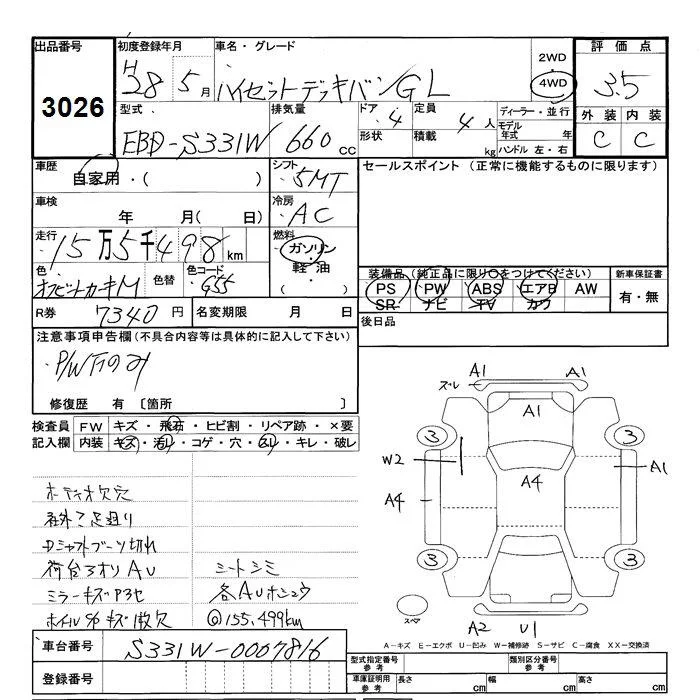 出品番号
3026
初度登録年月
H28年 5月
車名・グレード
ハイゼットデッキバン/GL
2WD
4WD
評価点
3.5
外装 内装
C C
型式
EBD-S331W
排気量
660 cc
ドア
4
形状
定員
4人
積載 kg
ディーラー・並行
モデル年式 年
ハンドル 左・右
車歴
自家用・( )
シフト
5MT
セールスポイント (正常に機能するものに限ります)
車検
年 月( 日)
冷房
AC
走行
15万5千498km
燃料
ガソリン
軽油
・( )
色
オフビートカーキM
色替
色コード
G55
装備品(純正品に限り○をつけてください)
PS PW ABS エアB AW
SR ナビ TV カワ
新車保証書
有・無
R券 7340円
名変期限 月 日
後日品
注意事項申告欄(不具合内容等は具体的に記入して下さい)
修復歴 有 〔箇所 〕
検査員記入欄
FW キズ・飛石・ヒビ割・リペア跡・×要
内装 キズ・汚れ・コゲ・穴・スレ・キレ・破レ
オーディオ欠穴
社外マ足廻り
Dシャフトブーツ切れ
荷台アオリAU
シートシミ
ミラーキズ
各AUホシュウ
ホイル%キズ
@155,499km
A1
ズレ
A1
A1
3
3
W2
A1
A4
A4
3
3
スペア
A2
U1
A-キズ E-エクボ U-凹み W-補修跡 S-サビ C-腐食 XX-交換済
車台番号
S331W-0007816
登録番号
型式指定番号
参考
類別区分番号
参考
車庫証明用
参考
長さ cm
幅 cm
高さ cm